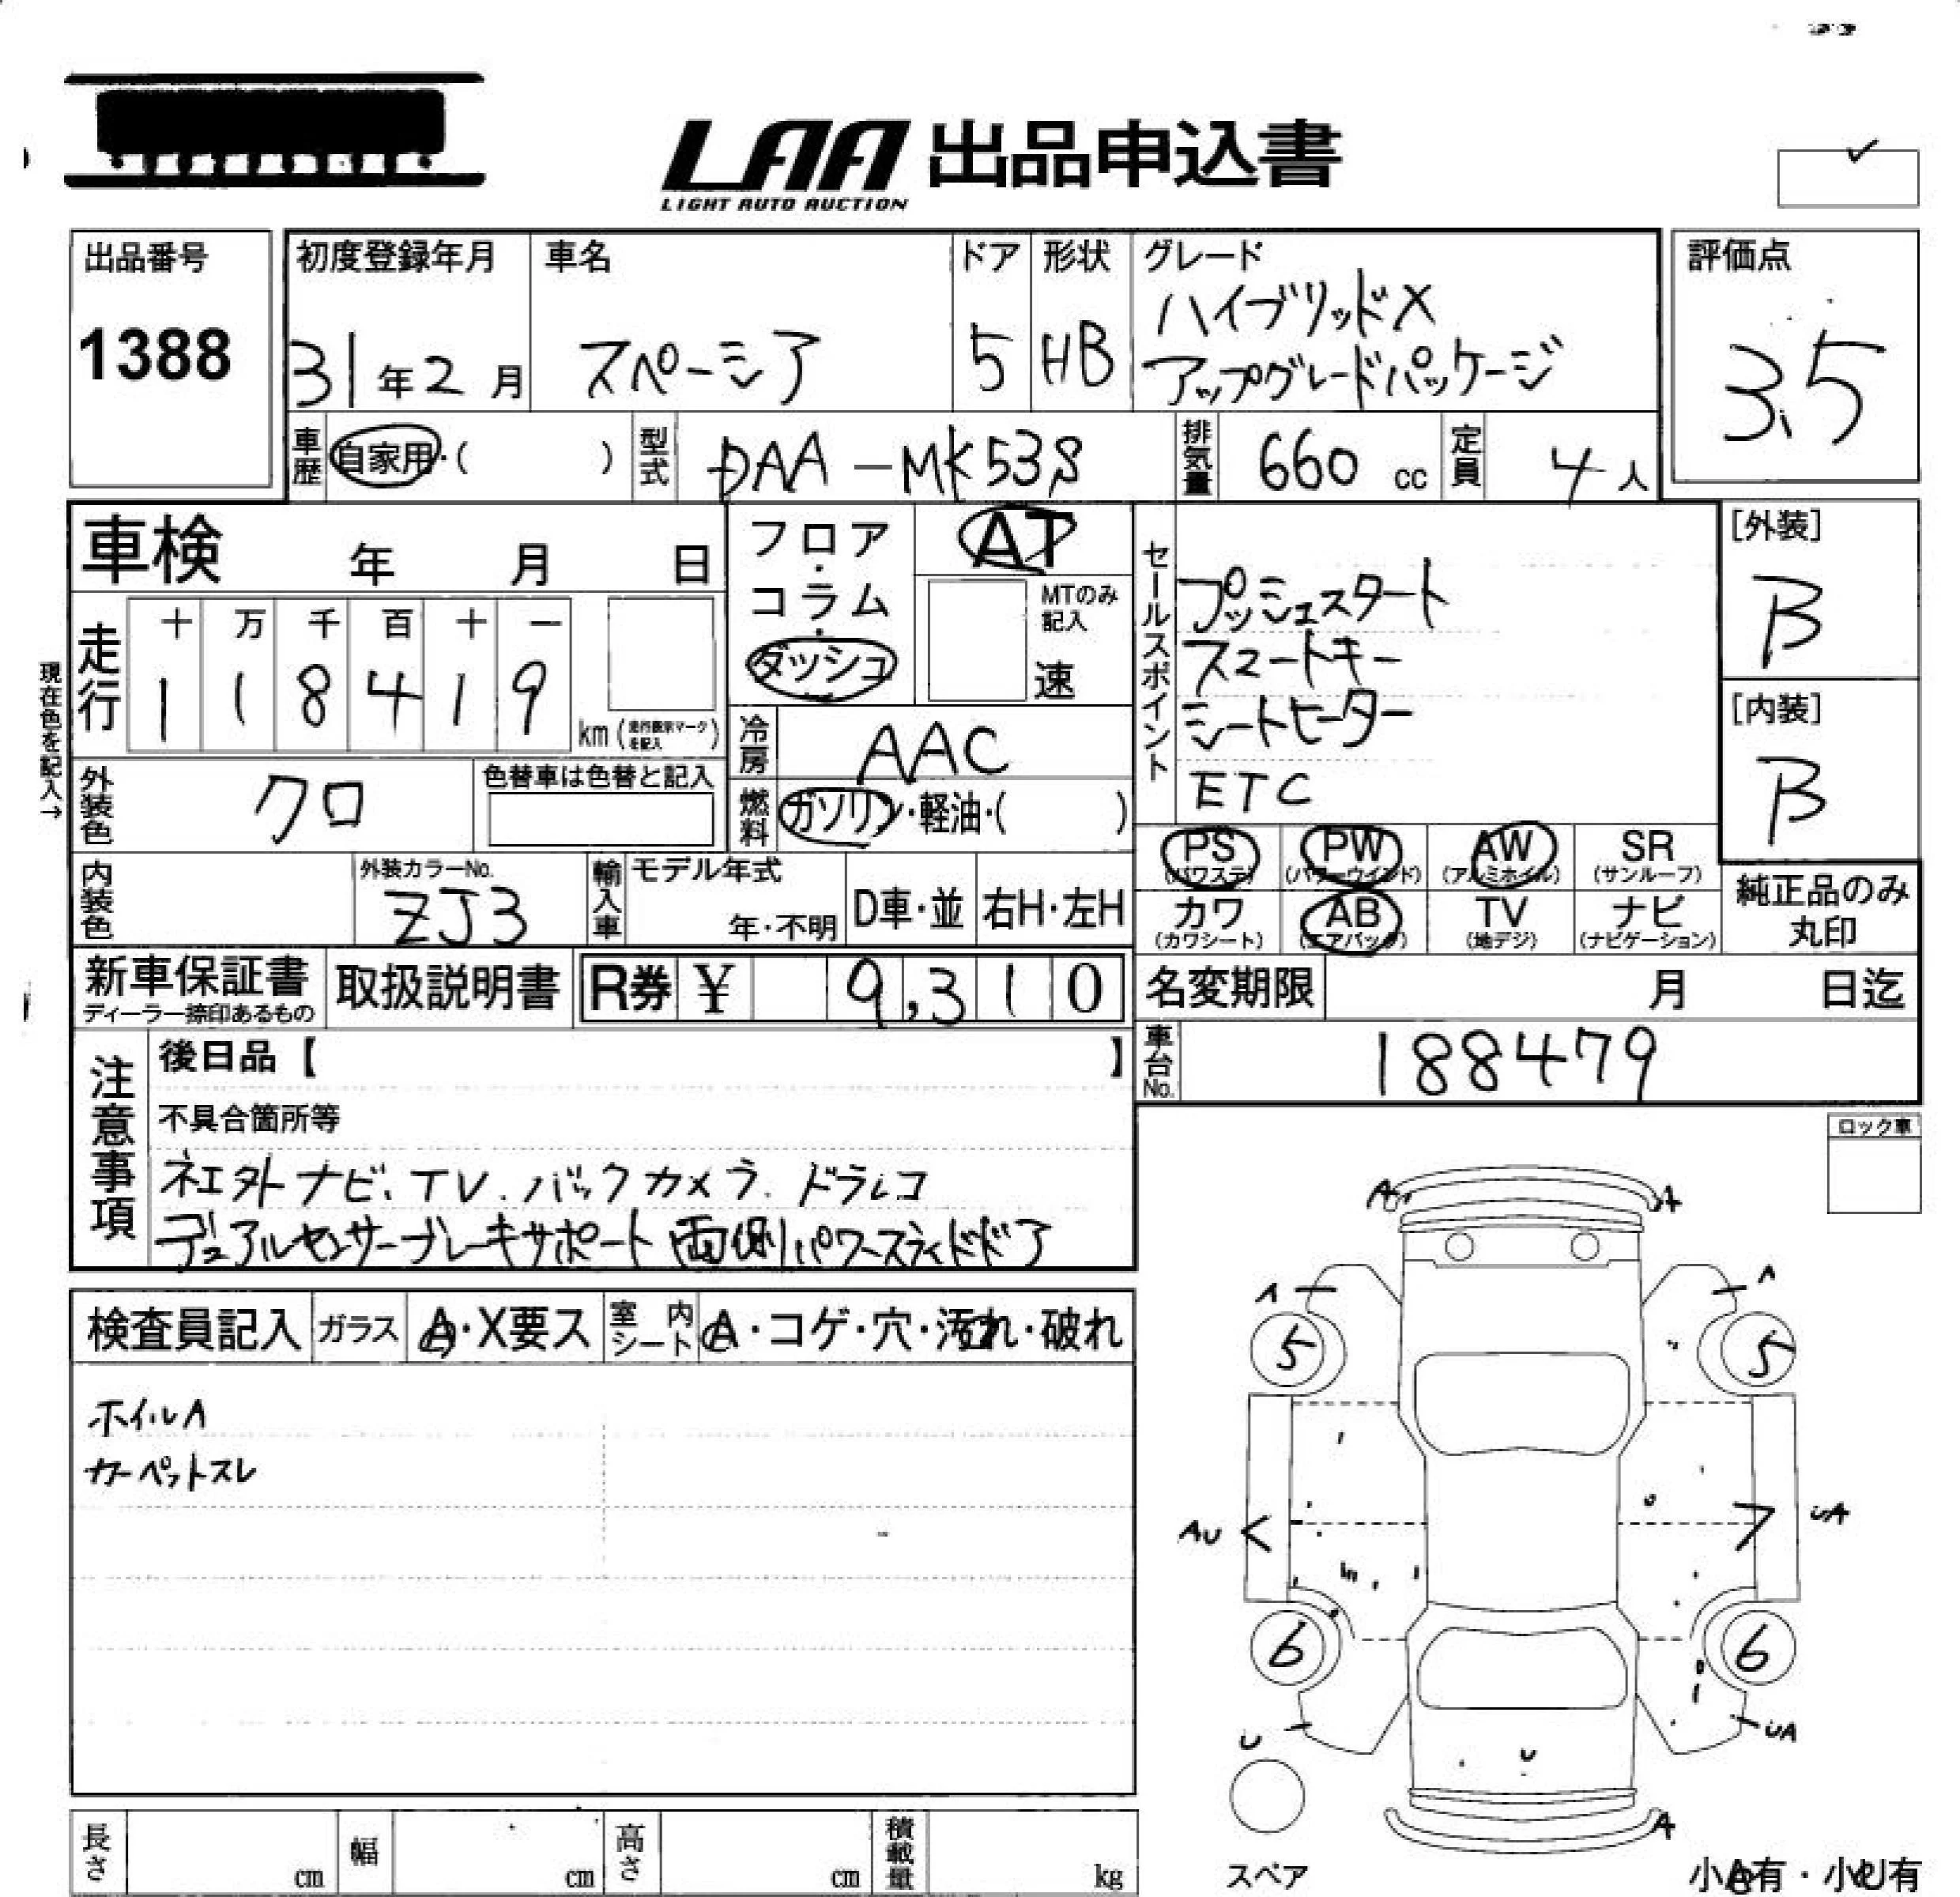 LAA 出品申込書
LIGHT AUTO AUCTION
出品番号
1388
初度登録年月
31年2月
車名
スペーシア
ドア
5
形状
HB
グレード
ハイブリッドX
アップグレードパッケージ
評価点
3.5
車歴 自家用・( )
型式 DAA-MK53S
排気量 660 cc
定員 4人
車検 年 月 日
フロア・コラム・ダッシュ
AT
MTのみ記入
速
セールスポイント
プッシュスタート
スマートキー
シートヒーター
ETC
[外装]
B
[内装]
B
現在色を記入→
走行
十 万 千 百 十 一
1 1 8 4 1 9
km (走行表示マークを記入)
冷房 AAC
外装色 クロ
色替車は色替と記入
燃料 ガソリン・軽油・( )
PS (パワステ)
PW (パワーウインド)
AW (アルミホイル)
SR (サンルーフ)
カワ (カワシート)
AB (エアバック)
TV (地デジ)
ナビ (ナビゲーション)
純正品のみ
丸印
内装色
外装カラーNo.
ZJ3
輸入車
モデル年式
年・不明
D車・並
右H・左H
新車保証書
ディーラー捺印あるもの
取扱説明書
R券 ¥ 9,310
名変期限 月 日迄
車台No. 188479
注意事項
後日品【 】
不具合箇所等
社外ナビ、TV、バックカメラ、ドラレコ
デュアルセンサーブレーキサポート 両側パワースライドドア
ロック車
検査員記入
ガラス A・X要ス
室内シート A・コゲ・穴・汚れ・破れ
ホイルA
カーペットスレ
A A
A A
5 5
AU UA
6 6
U UA
U
A
スペア
小A有・小U有
長さ cm
幅 cm
高さ cm
積載量 kg